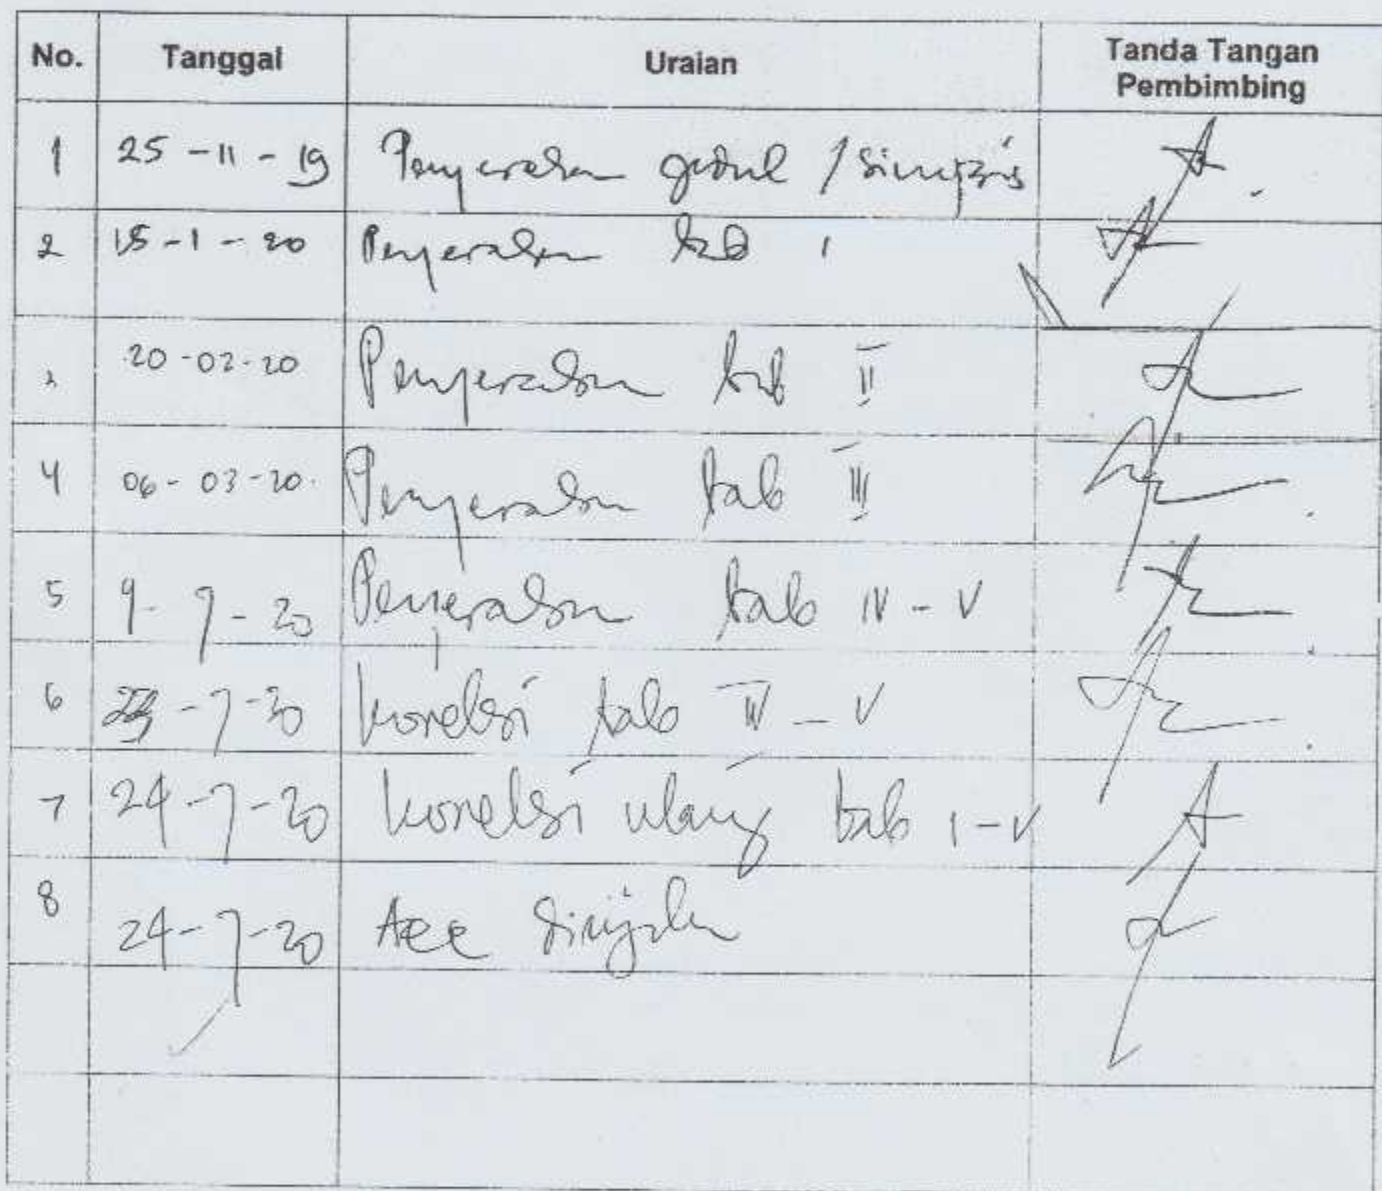 No. Tanggal Uraian Tanda Tangan
Pembimbing
1 25-11-19 Penyerahan judul / sinopsis
2 15-1-20 Penyerahan bab I
20-02-20 Penyerahan bab II
4 06-03-20. Penyerahan bab III
5 9-7-20 Penyerahan bab IV - V
6 -7-20 koreksi bab IV - V
7 24-7-20 koreksi ulang bab I-V
8 24-7-20 Acc